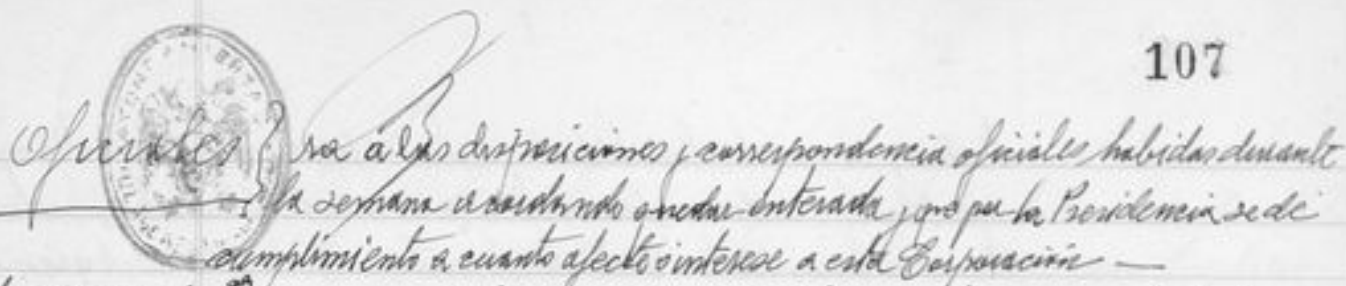 107
Oficiales ra a las disposiciones y correspondencia oficiales habidas durante
la semana acordando quedar enterada, y que por la Presidencia se dé
cumplimiento a cuanto afecte o interese a esta Corporación —